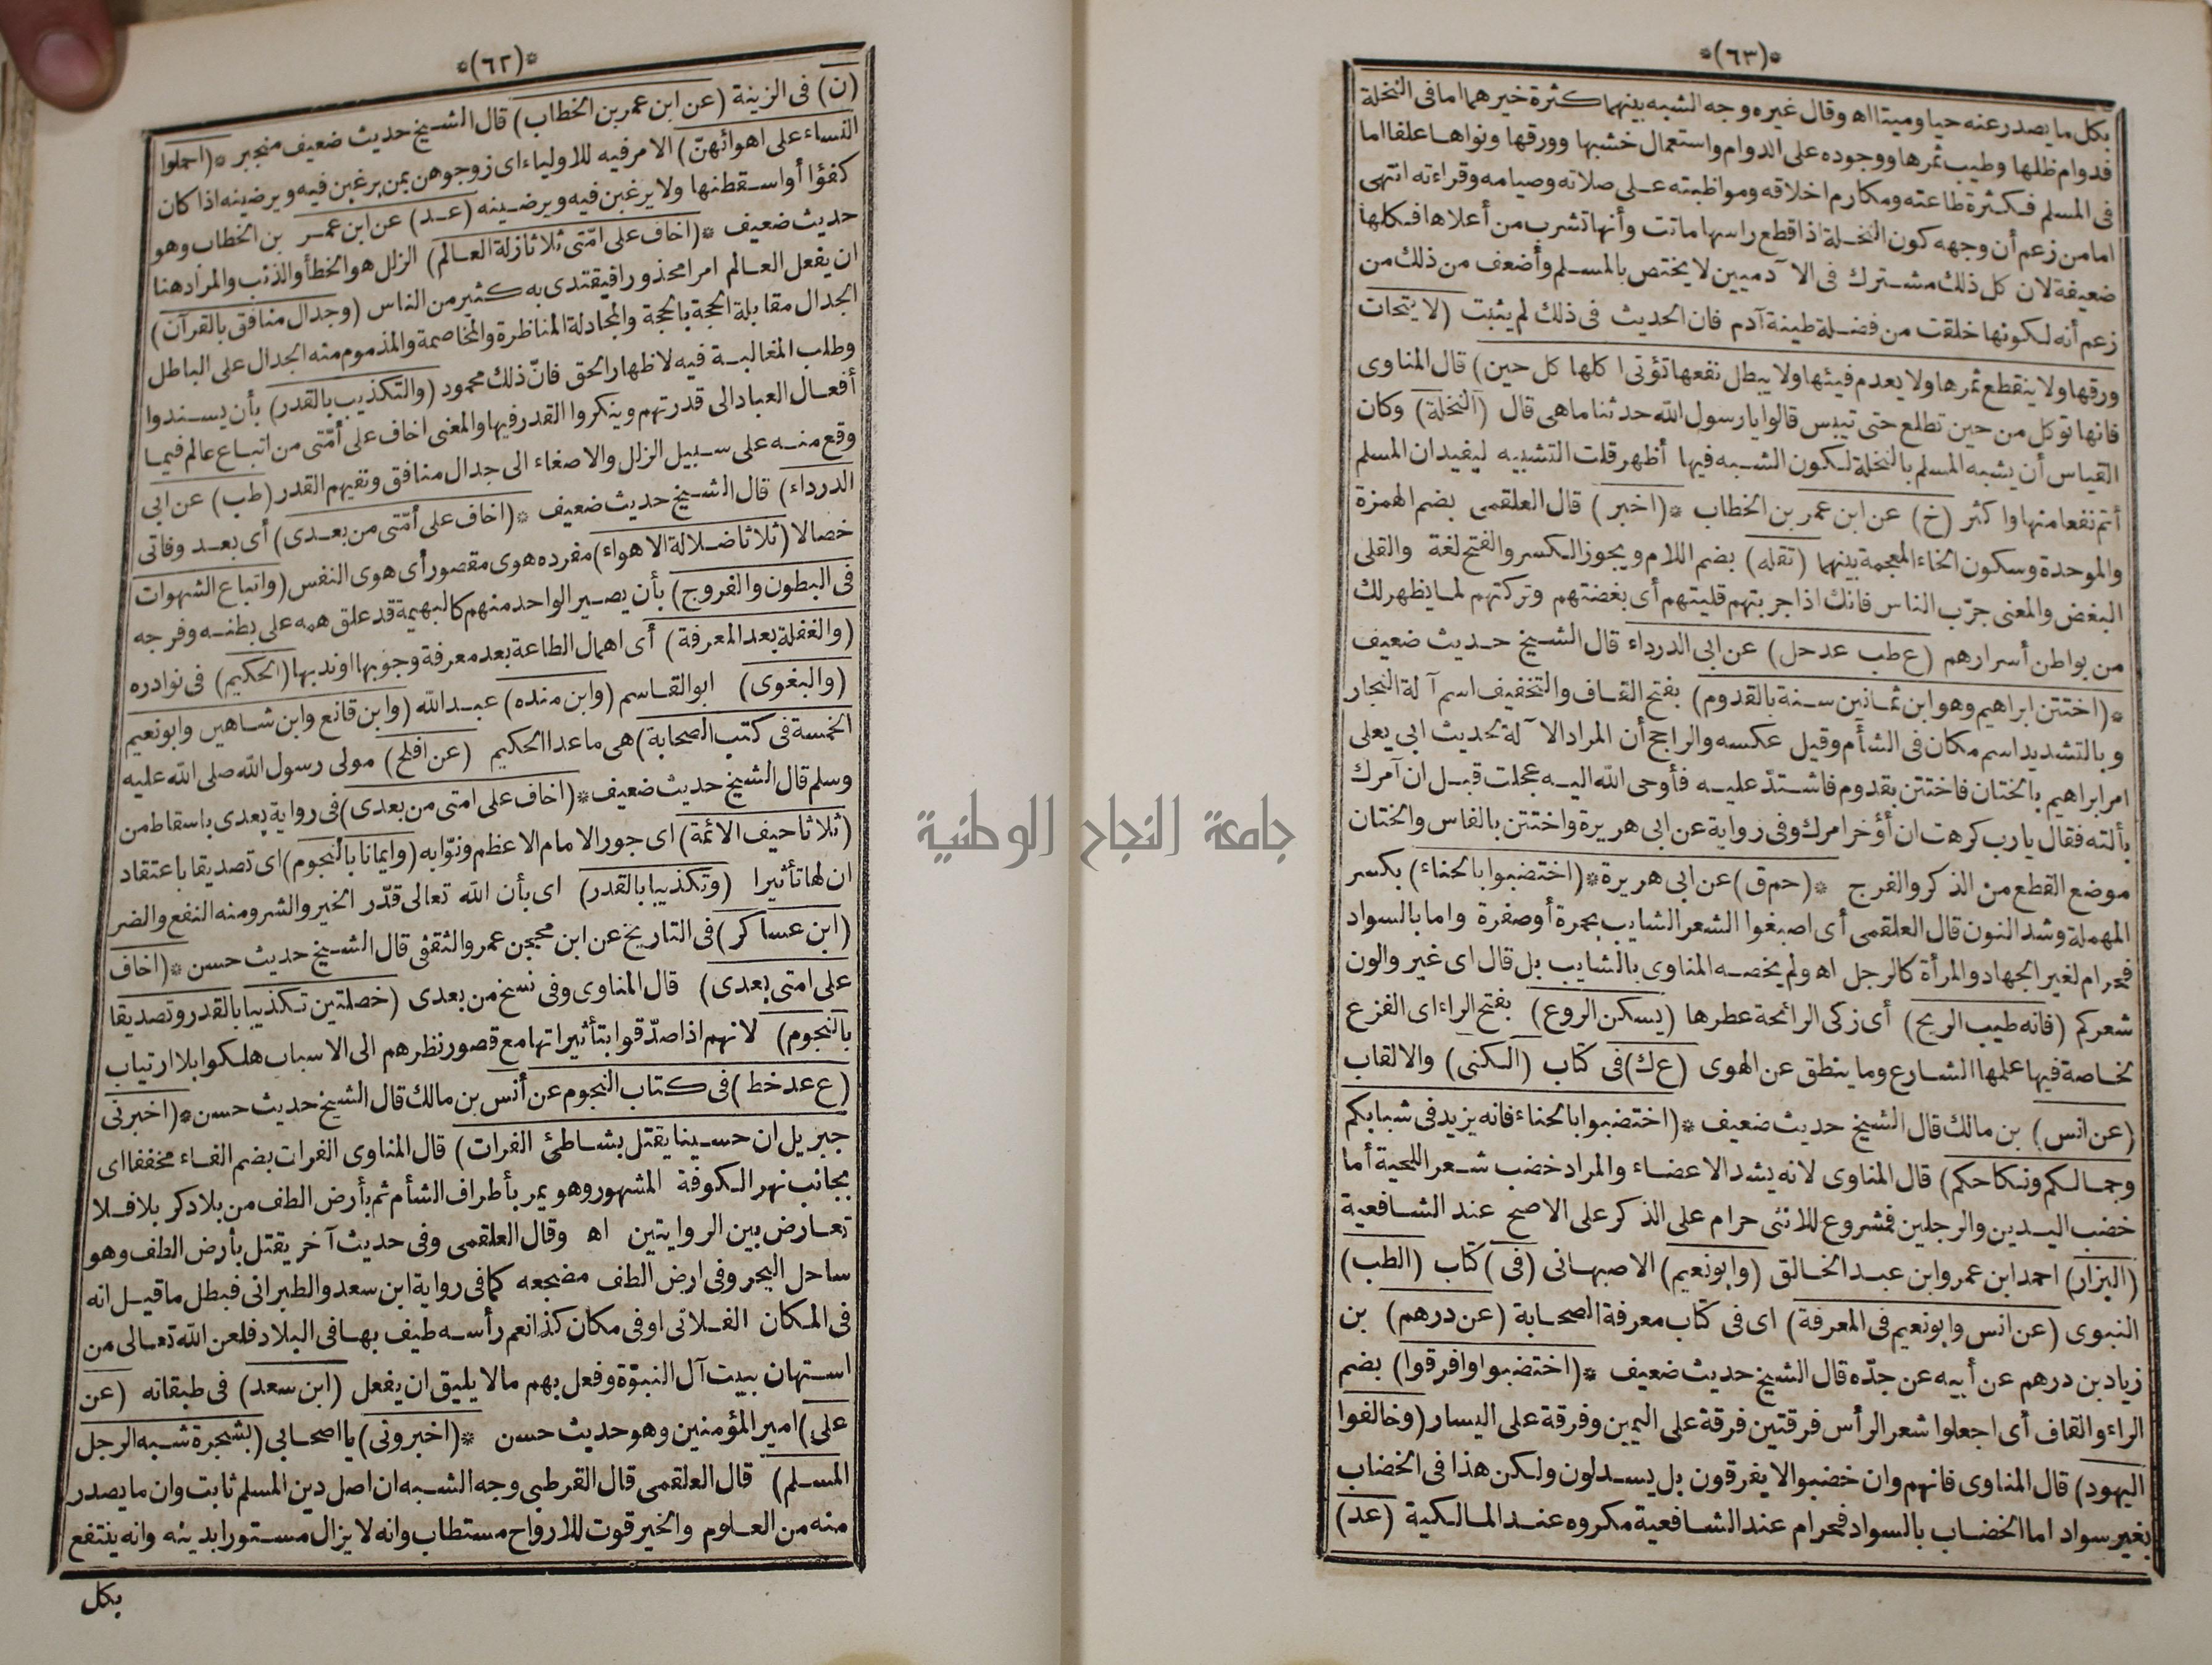 *(٦٢)*
(ن) فى الزينة (عن ابن عمر بن الخطاب) قال الشيخ حديث ضعيف منجبر *(احملوا
النساء على اهوائهنّ) الامر فيه للاولياء اى زوجوهن بمن يرغبن فيه ويرضينه اذا كان
كفؤا أو اسقطنها ولا يرغبن فيه ويرضينه (عد) عن ابن عمر بن الخطاب وهو
حديث ضعيف *(اخاف على امّتى ثلاثا زلة العالم) الزلل هو الخطأ والذنب والمراد هنا
ان يفعل العالم امرا محذورا فيقتدى به كثير من الناس (وجدال منافق بالقرآن)
الجدال مقابلة الحجة بالحجة والمجادلة المناظرة والمخاصمة والمذموم منه الجدال على الباطل
وطلب المغالبة فيه لا ظهار الحق فانّ ذلك محمود (والتكذيب بالقدر) بأن يسندوا
أفعال العباد الى قدرتهم وينكروا القدر فيها والمعنى اخاف على أمّتى من اتباع عالم فيما
وقع منه على سبيل الزلل والاصغاء الى جدال منافق ونفيهم القدر (طب) عن ابى
الدرداء) قال الشيخ حديث ضعيف *(اخاف على أمّتى من بعدى) أى بعد وفاتى
خصالا (ثلاثا ضلالة الاهواء) مفرده هوى مقصور أى هوى النفس (واتباع الشهوات
فى البطون والفروج) بأن يصير الواحد منهم كالبهيمة قد علق همه على بطنه وفرجه
(والغفلة بعد المعرفة) أى اهمال الطاعة بعد معرفة وجوبها اوندبها (الحكيم) فى نوادره
(والبغوى) ابو القاسم (وابن منده) عبد الله (وابن قانع وابن شاهين وابو نعيم
الخمسة فى كتب الصحابة) هى ماعدا الحكيم (عن افلح) مولى رسول الله صلى الله عليه
وسلم قال الشيخ حديث ضعيف *(اخاف على امتى من بعدى) فى رواية بعدى باسقاط من
(ثلاثا حيف الائمة) اى جور الامام الاعظم ونوّابه (وايمانا بالنجوم) اى تصديقا باعتقاد
ان لها تأثيرا (وتكذيبا بالقدر) اى بأن الله تعالى قدّر الخير والشر ومنه النفع والضر
(ابن عساكر) فى التاريخ عن ابن محجن عمرو الثقفى قال الشيخ حديث حسن *(اخاف
على امتى بعدى) قال المناوى وفى نسخ من بعدى (خصلتين تكذيبا بالقدر وتصديقا
بالنجوم) لانهم اذا صدّقوا بتأثيراتها مع قصور نظرهم الى الاسباب هلكوا بلا ارتياب
(ع عد خط) فى كتاب النجوم عن أنس بن مالك قال الشيخ حديث حسن *(اخبرنى
جبريل ان حسينا يقتل بشاطئ الفرات) قال المناوى الفرات بضم الفاء مخففا اى
بجانب نهر الكوفة المشهور وهو يمر بأطراف الشأم ثم بأرض الطف من بلاد كربلا فلا
تعارض بين الروايتين اه وقال العلقمى وفى حديث آخر يقتل بأرض الطف وهو
ساحل البحر وفى ارض الطف مضجعه كما فى رواية ابن سعد والطبرانى فبطل ما قيل انه
فى المكان الفلانى اوفى مكان كذا نعم رأسه طيف بها فى البلاد فلعن الله تعالى من
استهان ببيت آل النبوّة وفعل بهم ما لا يليق ان يفعل (ابن سعد) فى طبقاته (عن
على) امير المؤمنين وهو حديث حسن *(اخبرونى) يا اصحابى (بشجرة شبه الرجل
المسلم) قال العلقمى قال القرطبى وجه الشبه ان اصل دين المسلم ثابت وان ما يصدر
منه من العلوم والخير قوت للارواح مستطاب وانه لا يزال مستورا بدينه وانه ينتفع
بكل
*(٦٣)*
بكل ما يصدر عنه حيا وميتا اه وقال غيره وجه الشبه بينهما كثرة خيرهما اما فى النخلة
فدوام ظلها وطيب ثمرها ووجوده على الدوام واستعمال خشبها وورقها ونواها علفا اما
فى المسلم فكثرة طاعته ومكارم اخلاقه ومواظبته على صلاته وصيامه وقراءته انتهى
اما من زعم أن وجهه كون النخلة اذا قطع راسها ماتت وأنها تشرب من أعلاها فكلها
ضعيفة لان كل ذلك مشترك فى الآدميين لا يختص بالمسلم وأضعف من ذلك من
زعم أنه لكونها خلقت من فضلة طينة آدم فان الحديث فى ذلك لم يثبت (لا يتحات
ورقها ولا ينقطع ثمرها ولا يعدم فيئها ولا يبطل نفعها تؤتى اكلها كل حين) قال المناوى
فانها توكل من حين تطلع حتى تيبس قالوا يا رسول الله حدثنا ما هى قال (النخلة) وكان
القياس أن يشبه المسلم بالنخلة لكون الشبه فيها أظهر قلت التشبيه ليفيد ان المسلم
أتم نفعا منها واكثر (خ) عن ابن عمر بن الخطاب *(اخبر) قال العلقمى بضم الهمزة
والموحدة وسكون الخاء المعجمة بينهما (تقله) بضم اللام ويجوز الكسر والفتح لغة والقلى
البغض والمعنى جرّب الناس فانك اذا جربتهم قليتهم أى بغضتهم وتركتهم لما يظهر لك
من بواطن أسرارهم (ع طب عد حل) عن ابى الدرداء قال الشيخ حديث ضعيف
*(اختتن ابراهيم وهو ابن ثمانين سنة بالقدوم) بفتح القاف والتخفيف اسم آلة النجار
وبالتشديد اسم مكان فى الشأم وقيل عكسه والراجح أن المراد الآلة لحديث ابى يعلى
امر ابراهيم بالختان فاختتن بقدوم فاشتدّ عليه فأوحى الله اليه عجلت قبل ان آمرك
بألته فقال يا رب كرهت ان أؤخر امرك وفى رواية عن ابى هريرة واختتن بالفاس والختان
موضع القطع من الذكر والفرج *(حم ق) عن ابى هريرة *(اختضبوا بالحناء) بكسر
المهملة وشد النون قال العلقمى أى اصبغوا الشعر الشايب بحمرة أو صفرة واما بالسواد
فحرام لغير الجهاد والمرأة كالرجل اه ولم يخصه المناوى بالشايب بل قال اى غير والون
شعركم (فانه طيب الريح) أى زكى الرائحة عطرها (يسكن الروع) بفتح الراء اى الفزع
لخاصة فيها علمها الشارع وما ينطق عن الهوى (ع ك) فى كتاب (الكنى) والالقاب
(عن انس) بن مالك قال الشيخ حديث ضعيف *(اختضبوا بالحناء فانه يزيد فى شبابكم
وجمالكم ونكاحكم) قال المناوى لانه يشد الاعضاء والمراد خضب شعر اللحية أما
خضب اليدين والرجلين فمشروع للانثى حرام على الذكر على الاصح عند الشافعية
(البزار) احمد ابن عمرو ابن عبد الخالق (وابو نعيم) الاصبهانى (فى) كتاب (الطب)
النبوى (عن انس وابو نعيم فى المعرفة) اى فى كتاب معرفة الصحابة (عن درهم) بن
زياد بن درهم عن أبيه عن جدّه قال الشيخ حديث ضعيف *(اختضبوا وافرقوا) بضم
الراء والقاف أى اجعلوا شعر الرأس فرقتين فرقة على اليمين وفرقة على اليسار (وخالفوا
اليهود) قال المناوى فانهم وان خضبوا لا يفرقون بل يسدلون ولكن هذا فى الخضاب
بغير سواد اما الخضاب بالسواد فحرام عند الشافعية مكروه عند المالكية (عد)
جامعة النجاح الوطنية